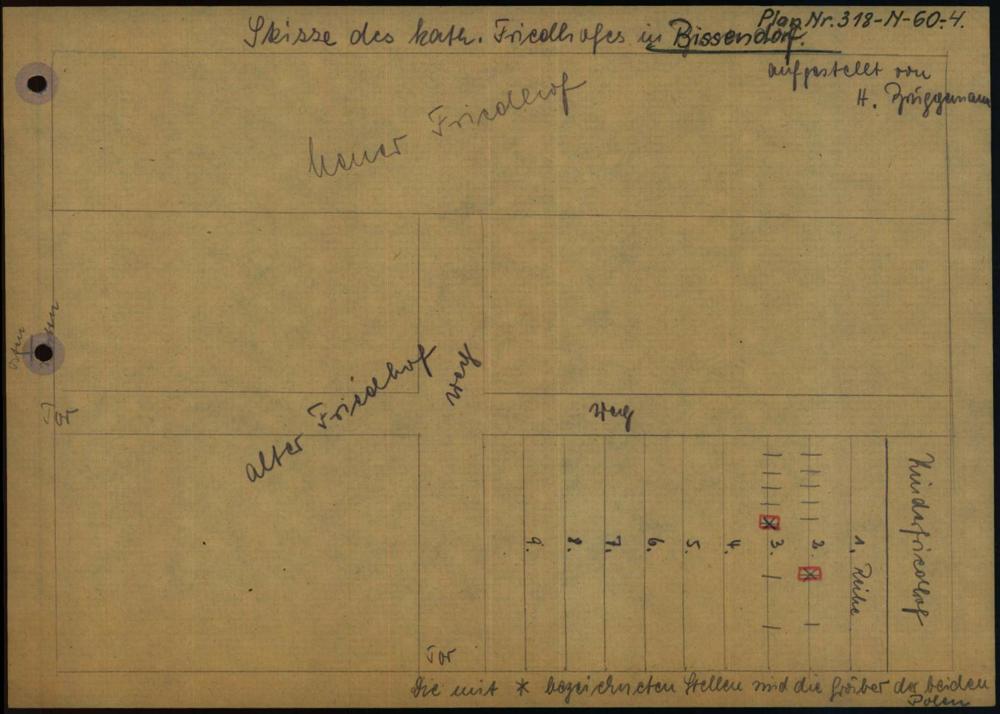 Plan Nr. 318-N-60-4.
Skizze des kath. Friedhofes in Bissendorf.
aufgestellt von
H. Brüggemann
neuer Friedhof
alter Friedhof
Weg
Weg
Tor
Kinderfriedhof
1. Reihe
2.
3.
4.
5.
6.
7.
8.
9.
Tor
Die mit * bezeichneten Stellen sind die Gräber der beiden
Polen